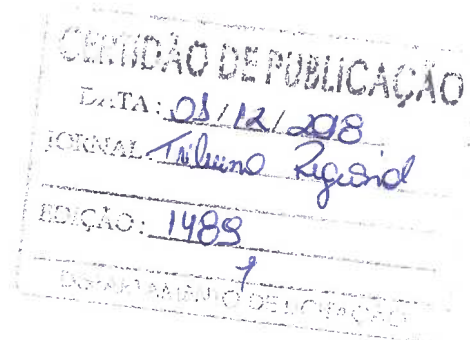 CERTIDÃO DE PUBLICAÇÃO
DATA: 01/12/2018
JORNAL: Tribuna Regional
EDIÇÃO: 1489
1
DEPARTAMENTO DE LICITAÇÃO